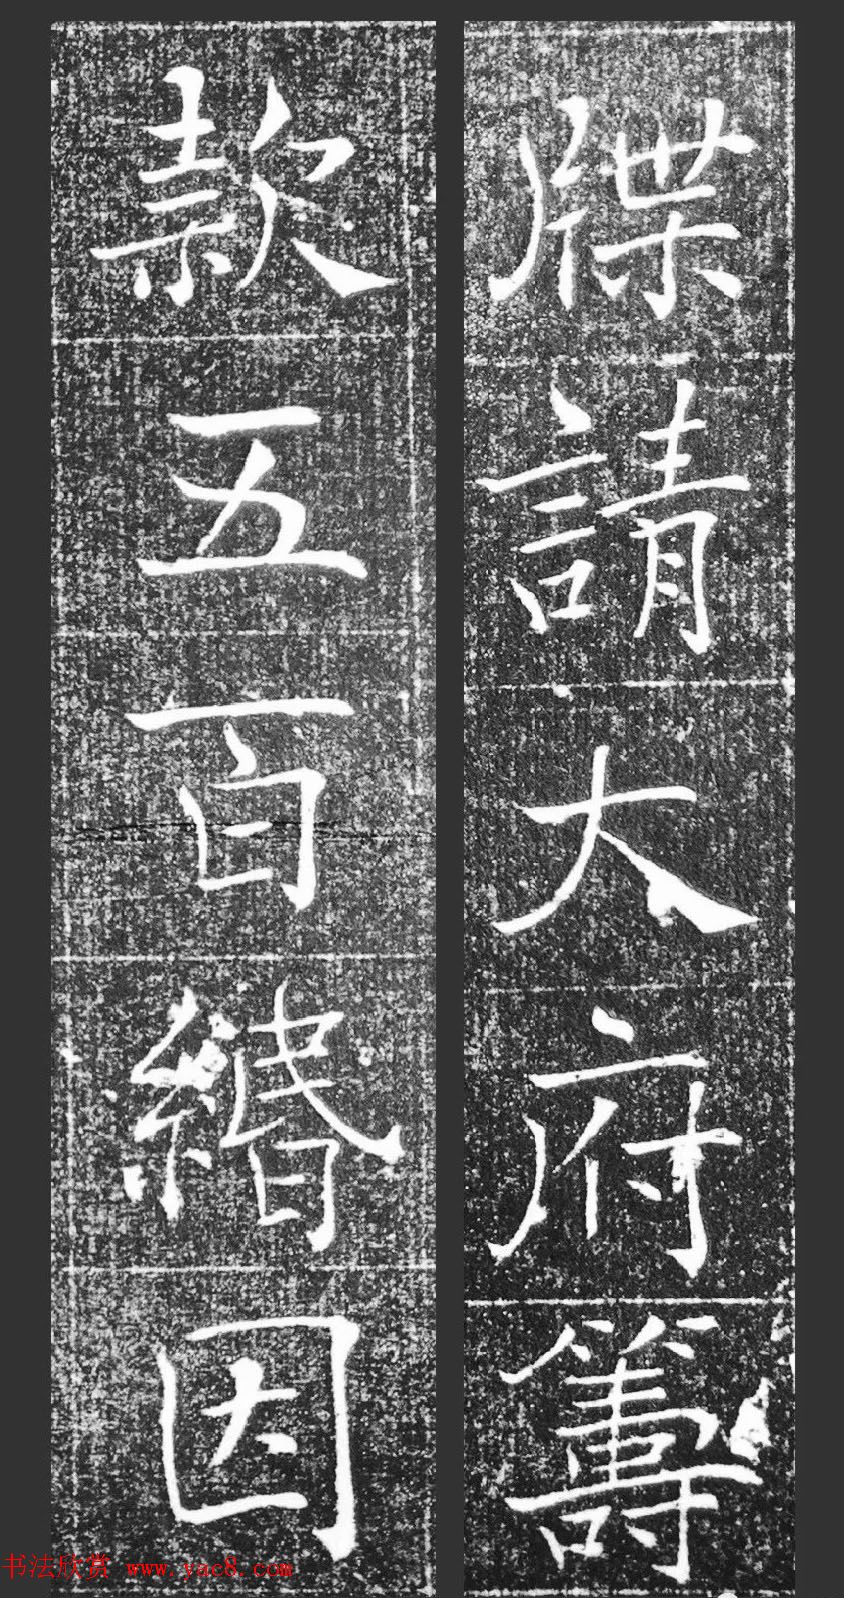 牒請大府籌
款五百緡因
书法欣赏 www.yac8.com